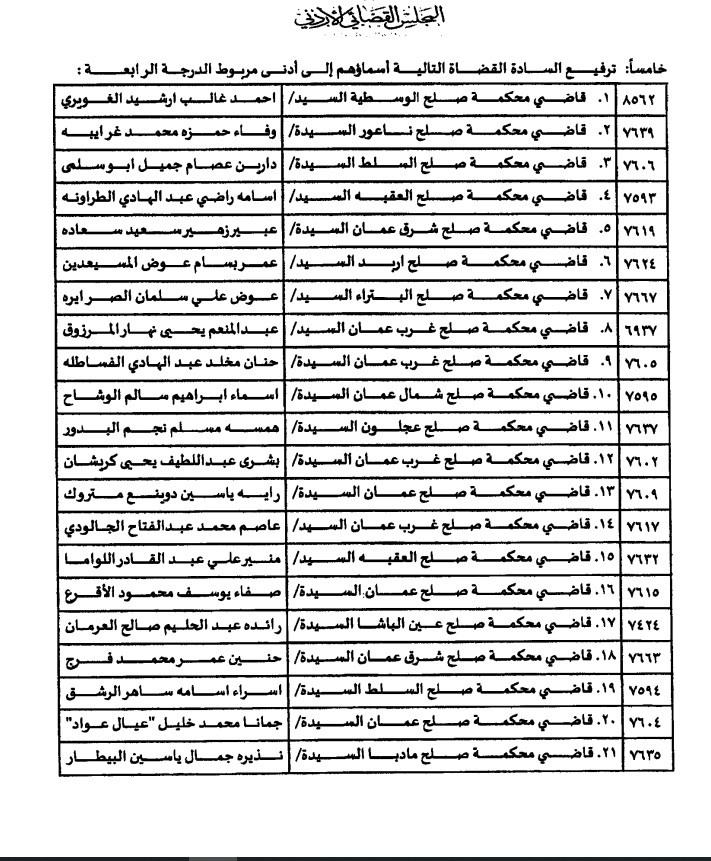 المجلس القضائي الأردني
خامساً: ترفيع السادة القضاة التالية أسماؤهم إلى أدنى مربوط الدرجة الرابعة :
٨٥٦٢ ١. قاضي محكمة صلح الوسطية السيد/ احمد غالب ارشيد الغويري
٧٦٣٩ ٢. قاضي محكمة صلح ناعور السيدة/ وفاء حمزه محمد غرايبه
٧٦٠٦ ٣. قاضي محكمة صلح السلط السيدة/ دارين عصام جميل ابو سلمى
٧٥٩٣ ٤. قاضي محكمة صلح العقبه السيد/ اسامه راضي عبد الهادي الطراونه
٧٦١٩ ٥. قاضي محكمة صلح شرق عمان السيدة/ عبير زهير سعيد سعاده
٧٦٢٤ ٦. قاضي محكمة صلح اربد السيد/ عمر بسام عوض المسيعدين
٧٦٦٧ ٧. قاضي محكمة صلح البتراء السيد/ عوض علي سلمان الصرايره
٦٩٣٧ ٨. قاضي محكمة صلح غرب عمان السيد/ عبدالمنعم يحيى نهار المرزوق
٧٦٠٥ ٩. قاضي محكمة صلح غرب عمان السيدة/ حنان مخلد عبد الهادي الفساطله
٧٥٩٥ ١٠. قاضي محكمة صلح شمال عمان السيدة/ اسماء ابراهيم سالم الوشاح
٧٦٣٧ ١١. قاضي محكمة صلح عجلون السيدة/ همسه مسلم نجم البدور
٧٦٠٢ ١٢. قاضي محكمة صلح غرب عمان السيدة/ بشرى عبداللطيف يحيى كريشان
٧٦٠٩ ١٣. قاضي محكمة صلح عمان السيدة/ رايه ياسين دوينع متروك
٧٦١٧ ١٤. قاضي محكمة صلح غرب عمان السيد/ عاصم محمد عبدالفتاح الجالودي
٧٦٣٢ ١٥. قاضي محكمة صلح العقبه السيد/ منير علي عبد القادر اللواما
٧٦١٥ ١٦. قاضي محكمة صلح عمان السيدة/ صفاء يوسف محمود الأقرع
٧٤٢٤ ١٧. قاضي محكمة صلح عين الباشا السيدة/ رائده عبد الحليم صالح العرمان
٧٦٦٣ ١٨. قاضي محكمة صلح شرق عمان السيدة/ حنين عمر محمد فرج
٧٥٩٤ ١٩. قاضي محكمة صلح السلط السيدة/ اسراء اسامه ساهر الرشق
٧٦٠٤ ٢٠. قاضي محكمة صلح عمان السيدة/ جمانا محمد خليل "عيال عواد"
٧٦٣٥ ٢١. قاضي محكمة صلح مادبا السيدة/ نذيره جمال ياسين البيطار